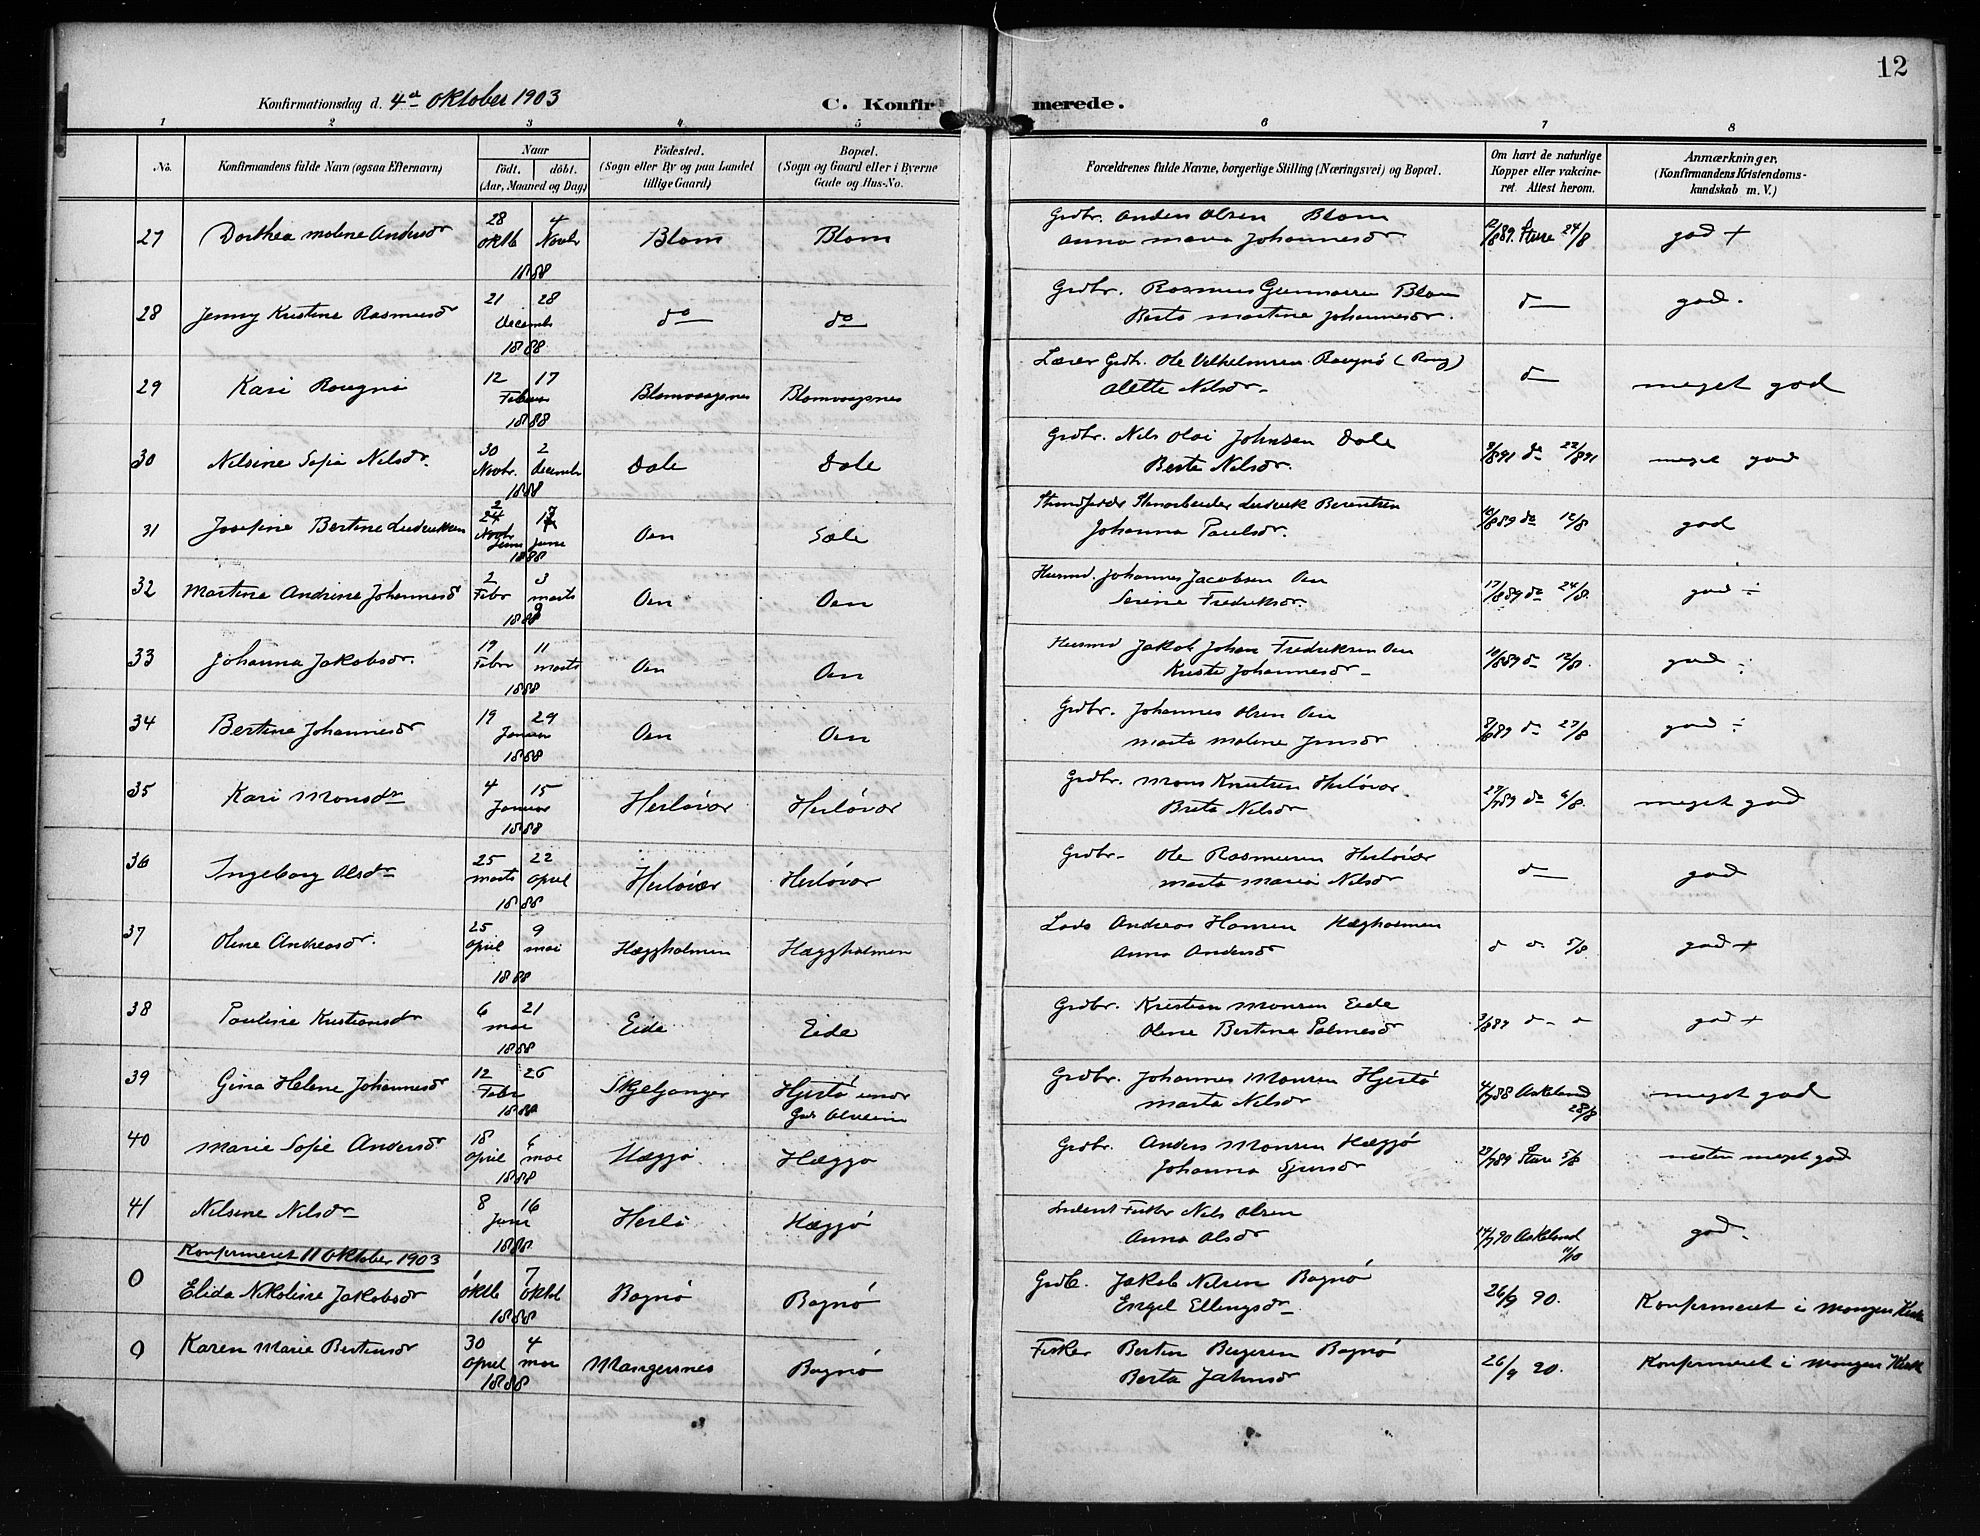 12
Konfirmationsdag d. 4de Oktober 1903
C. Konfirmerede.
1 2 3 4 5 6 7 8
No. Konfirmandens fulde Navn (ogsaa Efternavn) Naar Födt. döbt. (Aar, Maaned og Dag) Födested. (Sogn eller By og paa Landet tillige Gaard) Bopæl. (Sogn og Gaard eller i Byerne Gade og Hus-No.
Forældrenes fulde Navne, borgerlige Stilling (Næringsvei) og Bopæl. Om havt de naturlige Kopper eller vakcineret Attest herom. Anmærkninger. (Konfirmandens Kristendomskundskab m. V.)
27 Dorthea Malene Andersdr 28 Oktb 4 Novbr 1888 Blom Blom Grdbr. Anders Olsen Blom
Anna Maria Johannesdr god +
28 Jenny Kristine Rasmusdr 21 28 Decemb 1888 do do Grdbr. Rasmus Gunnarsen Blom
Berta Martine Johannesdr. d— god.
29 Kari Rougnø 12 17 Februar 1888 Blomvaagenes Blomvaagenes Lærer Grdb. Ole Vilhelmsen Rougnø (Roug)
Alette Nilsdr. d— meget god
30 Nilsine Sofia Nilsdr. 30 Novbr. 2 Decembr 1888 Dale Dale Grdbr. Nils Olai Johnsen Dale
Berte Nilsdr. 22/8 91 meget god
31 Josefine Bertine Ludviksen 2 Juni 17 Juni 1888 Oen Sæle Ludvik Berentsen
Johanna Paulsdr. 12/8 god
32 Martine Andrine Johannesd 2 Febr 3 Marts 1888 Oen Oen Husmd. Johannes Jacobsen Oen
Serine Fredriksdr. 17/8 89 do 24/8. god ÷
33 Johanna Jakobsdr. 19 Febr 11 Marts 1888 Oen Oen Husmd Jakob Johan Fredriksen Oen
Kristi Johannesdr 10/8 89 d- 12/8 god ÷
34 Bertine Johannesdr 19 29 Januar 1888 Oen Oen Grdbr. Johannes Olsen Oen
Marta Malene Jensdr 8/8 89 d- 27/8 god ÷
35 Kari Monsdr 4 15 Januar 1888 Herløvær Herløvær Grdbr. Mons Knutsen Herløvær.
Brita Nilsdr 29/7 89 do 6/8. meget god
36 Ingeborg Olsdr 25 Marts 22 April 1888 Herløvær Herløvær Grdbr. Ole Rasmussen Herløvær
Marta Maria Nilsdr d— god
37 Oline Andreasdr. 25 April 9 Mai 1888 Hæggholmen Hæggholmen Lods Andreas Hansen Hægholmen
Anna Andersdr d d. 5/8 god +
38 Pauline Kristiansdr 6 21 Mai 1888 Eide Eide Grdbr. Kristian Monsen Eide
Oline Bertine Palmesdr 3/8 89 d- d god +
39 Gina Helene Johannesdr 12 26 Febr 1888 Skjeljanger Hjertø Grdbr. Johannes Monsen Hjertø
Marta Nilsdr Askeland 28/8 meget god
40 Marie Sofie Andersdr 18 April 6 Mai 1888 Hæggø. Hæggø Grdbr. Anders Monsen Hæggø
Johanna Sjursdr 29/7 89 Sture 5/8 nesten meget god
41 Nilsine Nilsdr 8 16 Juni 1888 Herlø Hæggø Fisker Nils Olsen
Anna Olsdr 14/9 90 Askeland 11/10 god.
Konfirmeret 11 Oktober 1903
0 Elida Nikoline Jakobsdr 1 Oktb 7 Oktbr 1888 Bognø Bognø Grdb. Jakob Nilsen Bognø
Engel Ellingsdr 26/9 90. Konfirmeret i Manger Kirke
0 Karen Marie Bertinsdr 30 April 4 Mai 1888 Mangersnes Bognø Fisker Bertin Børgesen Bognø
Berta Jahnsdr 26/9 90. Konfirmeret i Manger Kirke